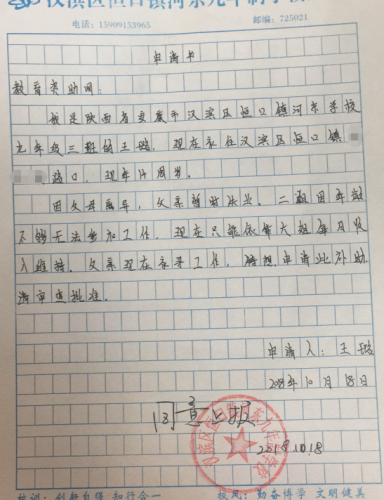 汉滨区恒口镇河东九年制学校
电话：15909153965 邮编：725021
申请书
教育资助网：
我是陕西省安康市汉滨区恒口镇河东学校
九年级三班的王璐，现在家住汉滨区恒口镇
路口，现年14周岁。
因父母离异，父亲暂时失业，二
不够无法参加工作，现在只能依靠大姐每月收
入维持。父亲现在在家工作，申请此补助
请审查批准。
申请人：王璐
2018年10月18日
同意上报
2018.10.18
校训：创新自强 知行合一 校风：勤奋博学 文明健美